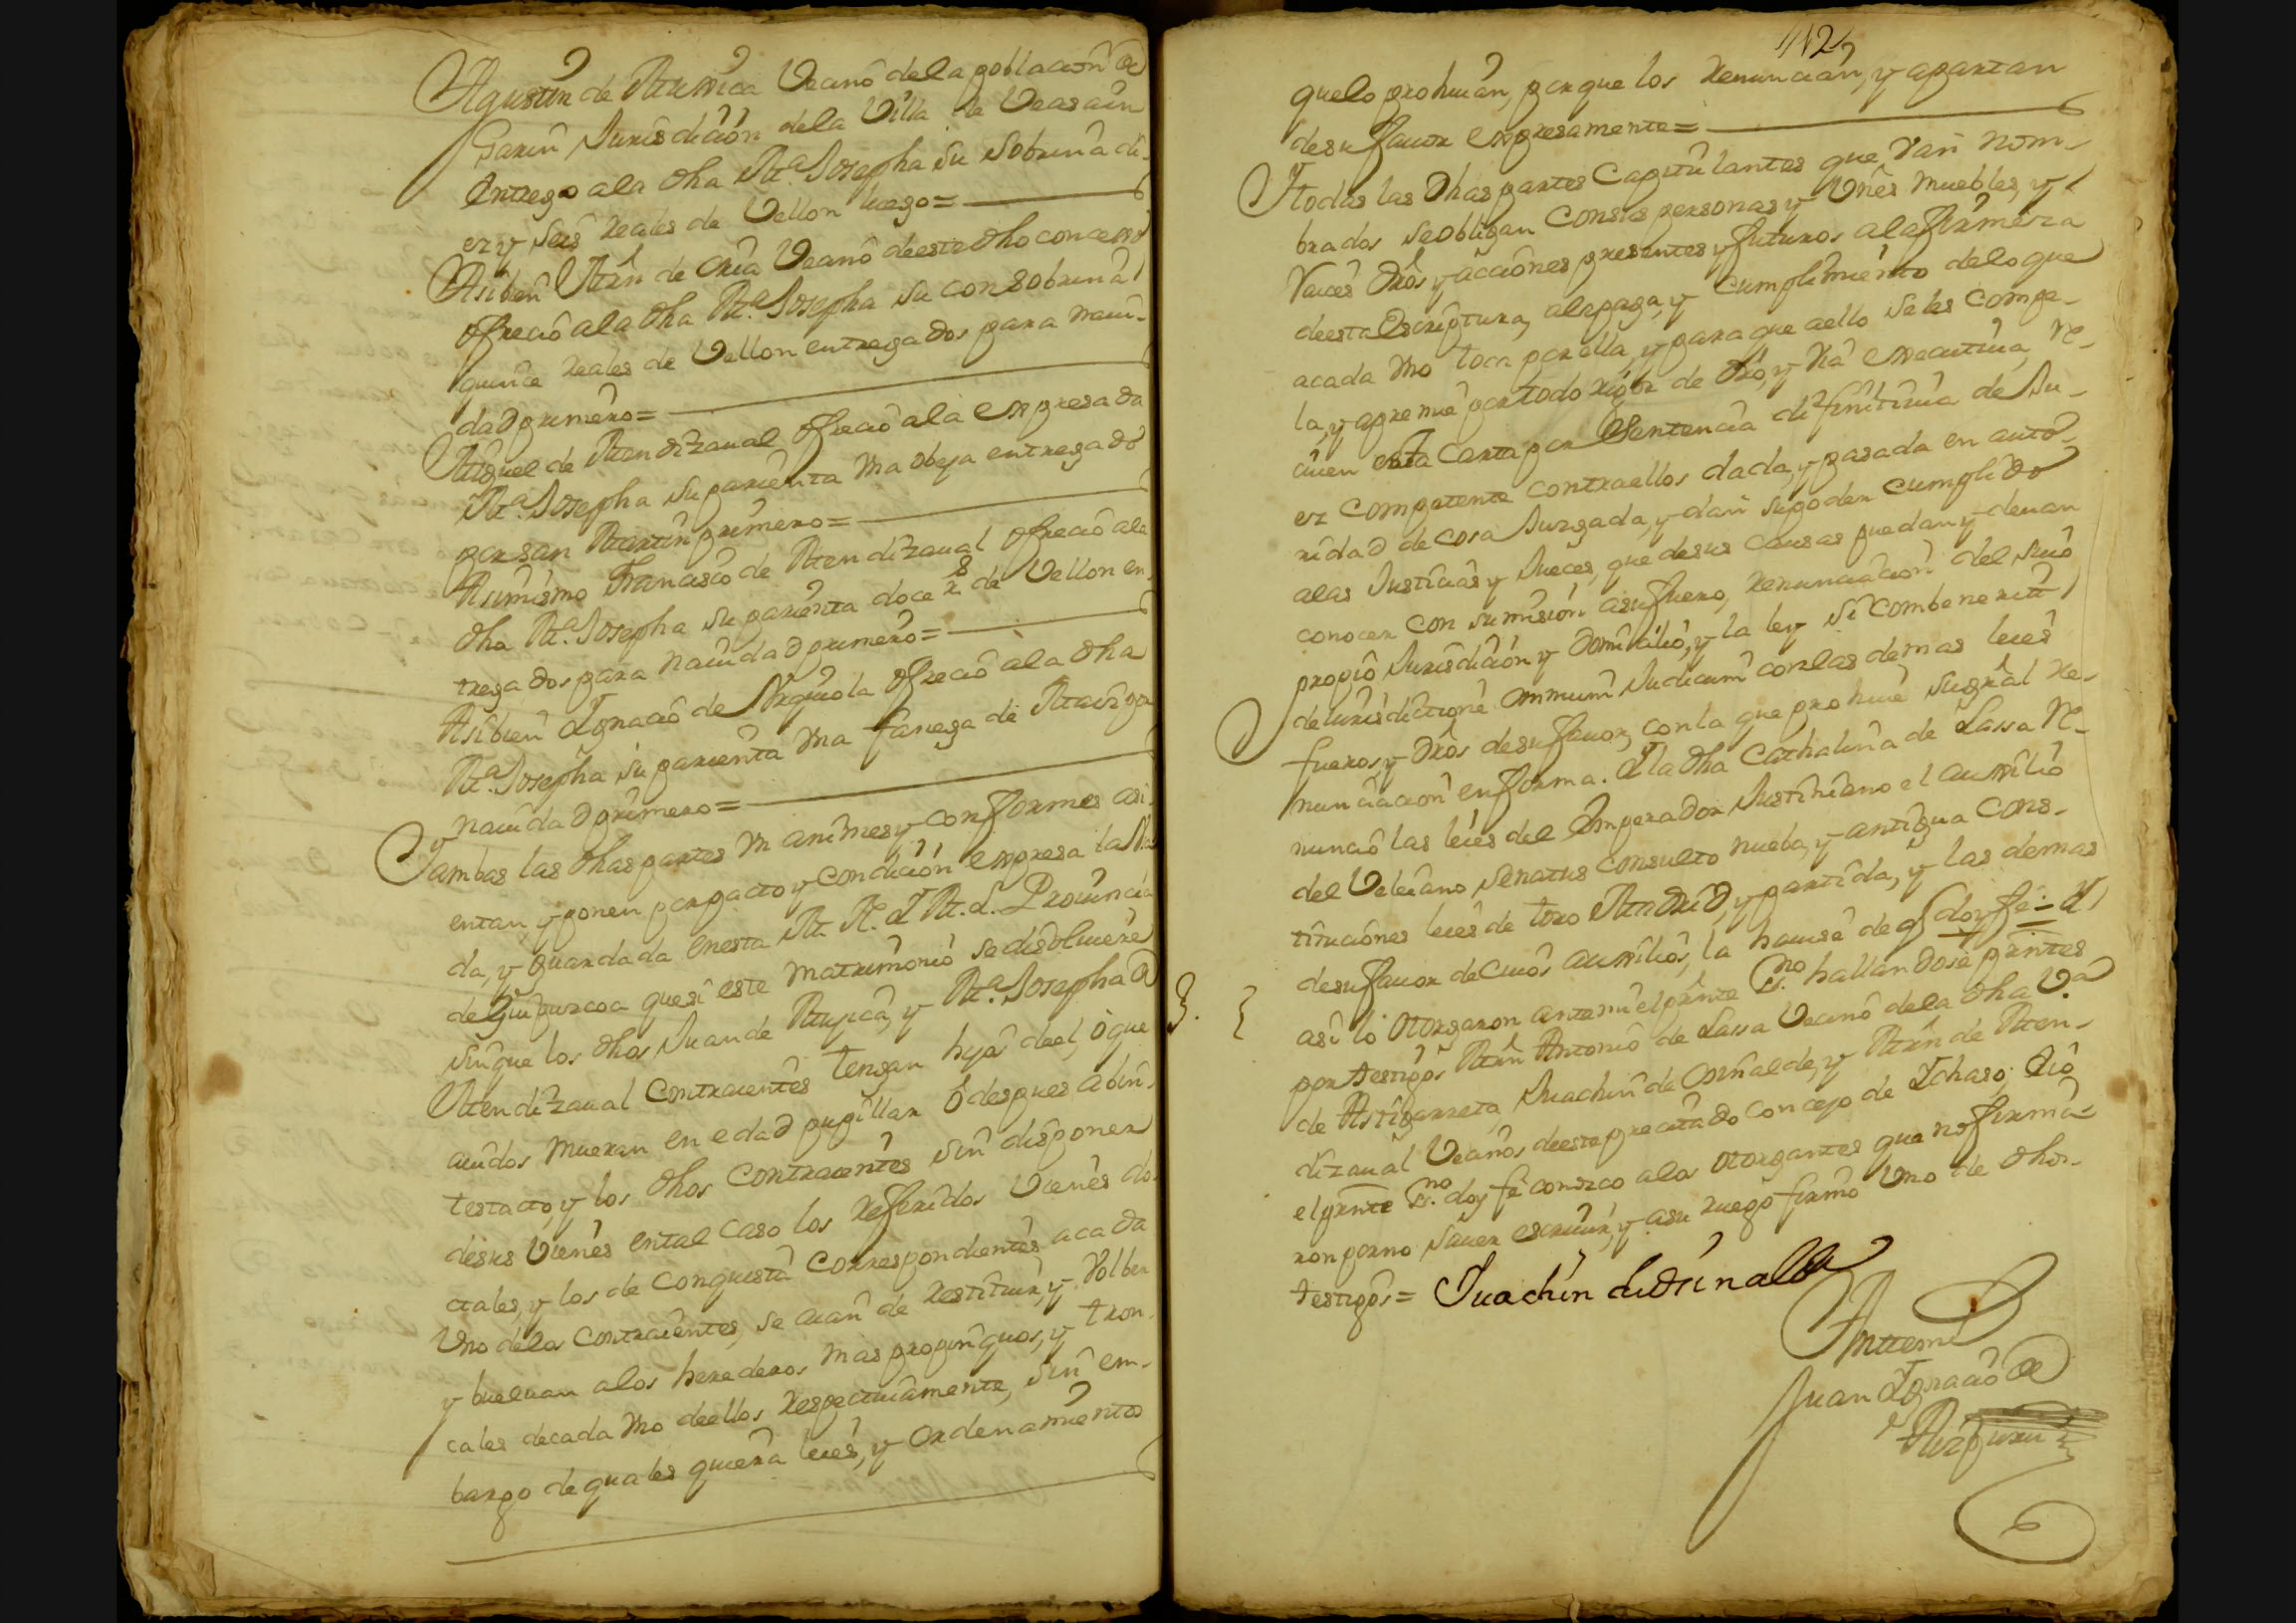 Agustin de Muxica Vecino dela poblacion de
Garin Jurisdiciòn dela Villa de Veasain
Entrego ala dha Ma. Josepha su sobrina di-
ez y seis reales de Vellon luego=
Asibien Mrn de Oria Vecino deeste dho concejo
ofreciò ala dha Ma. Josepha su consobrina
quince reales de Vellon entregados para navi-
dad primero=
Miguel de Mendizaual ofreciò ala expresada
Ma. Josepha su parienta vna obeja entregado
por san Martin primero=
Asimismo Francisco de Mendizaual ofreciò ala
dha Ma. Josepha su parienta doce rs de Vellon en-
tregados para navidad primero=
Asibien Ignacio de Urquiola ofreciò ala dha
Ma. Josepha su parienta vna fanega de
navidad primero=
Y ambas las dhas partes vnanimes y conformes asi-
entan, y ponen por pacto y condiciòn expresa
da, y guardada enesta M. N. Y M. L. Provincia
de Guipuzcoa que si este matrimonio se disoluiere
sinque los dhos Juan de Muxica, y Ma. Josepha de
Mendizaual Contraientes tengan hijos deel, ò que
auidos mueran en edad pupillar ò despues abin-
testato, y los dhos Contraientes sin disponer
desus vienes ental caso los referidos vienes do-
tales, y los de Conquista Correspondientes acada
Vno delos Contraientes, se aian de restituir, y Volber
y bueluan alos herederos mas propinquos, y tron-
cales decada vno deellos respectiuamente, sin em-
bargo de quales quiera leies, y ordenamientos
112
quelo prohiuan, porque los renuncian, y apartan
desu fauor expresamente=
Y todas las dhas partes Capitulantes que van nom-
brados seobligan Consus personas y vnes muebles, y
raices dros y acciones presentes y futuros ala firmeza
deesta Escriptura, alapaga, y cumplimiento deloque
acada vno toca por ella, y para que aello seles compe-
la, y apremie por todo rigor de dro, y via executiua, re-
ciuen esta Carta por Sentencia difinitiua de Ju-
ez competente contraellos dada, y pasada en auto-
ridad de cosa Juzgada, y dan supoder cumplido
alas Justicias y Jueces, que desus causas puedan y deuan
conocer con sumisiòn asu fuero, renunciacion del suio
propio Jurisdiciòn y domicilio, y la ley Si combenerit
deiurisdictione omnium Judicum conlas demas leies
fueros y dros desu fauor, conla que prohiue sugral re-
nunciacion en forma. Y la dha Cathalina de Lassa re-
nunciò las leies del Imperador Justiniano el auxilio
del Veleiano senatus consulto nueba, y antigua Cons-
tituciones leies de toro Madrid, y partida, y las demas
desu fauor de cuios auxilios, la hauise de q doy fe = Y
asi lo otorgaron antemi elprnte Ssno. hallandose prntes
por testigos Mrn Antonio de Lassa Vecino dela dha Va.
de Astigarreta, Juachin de Osinalde, y Mrn de Men-
dizaual Vecinos deeste precitado concejo de Ichaso; Eiò
elprnte Ssno. doy fè conozco alos otorgantes que no firma-
ron porno sauer escriuir, y asu ruego firmò vno de dhos
testigos=
Juachin de Osinalde
Anttemi
Juan Ignacio de